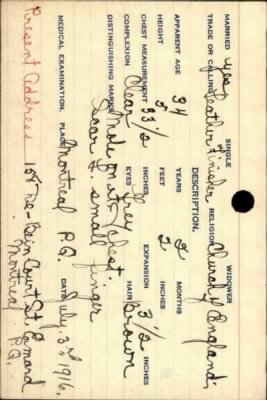 MARRIED yes SINGLE WIDOWER
TRADE OR CALLING Leather Finisher RELIGION Church of England.
DESCRIPTION.
APPARENT AGE 34 YEARS 2 MONTHS
HEIGHT 5 FEET 2 INCHES
CHEST MEASUREMENT 33 1/2 INCHES EXPANSION 3 1/2 INCHES
COMPLEXION Clear EYES Grey HAIR Brown
DISTINGUISHING MARKS Mole on rt chest.
Scar L. small finger
MEDICAL EXAMINATION. PLACE Montreal P.Q. DATE July. 3rd 1916.
Present Address Court St. Emard
Montreal P.Q.